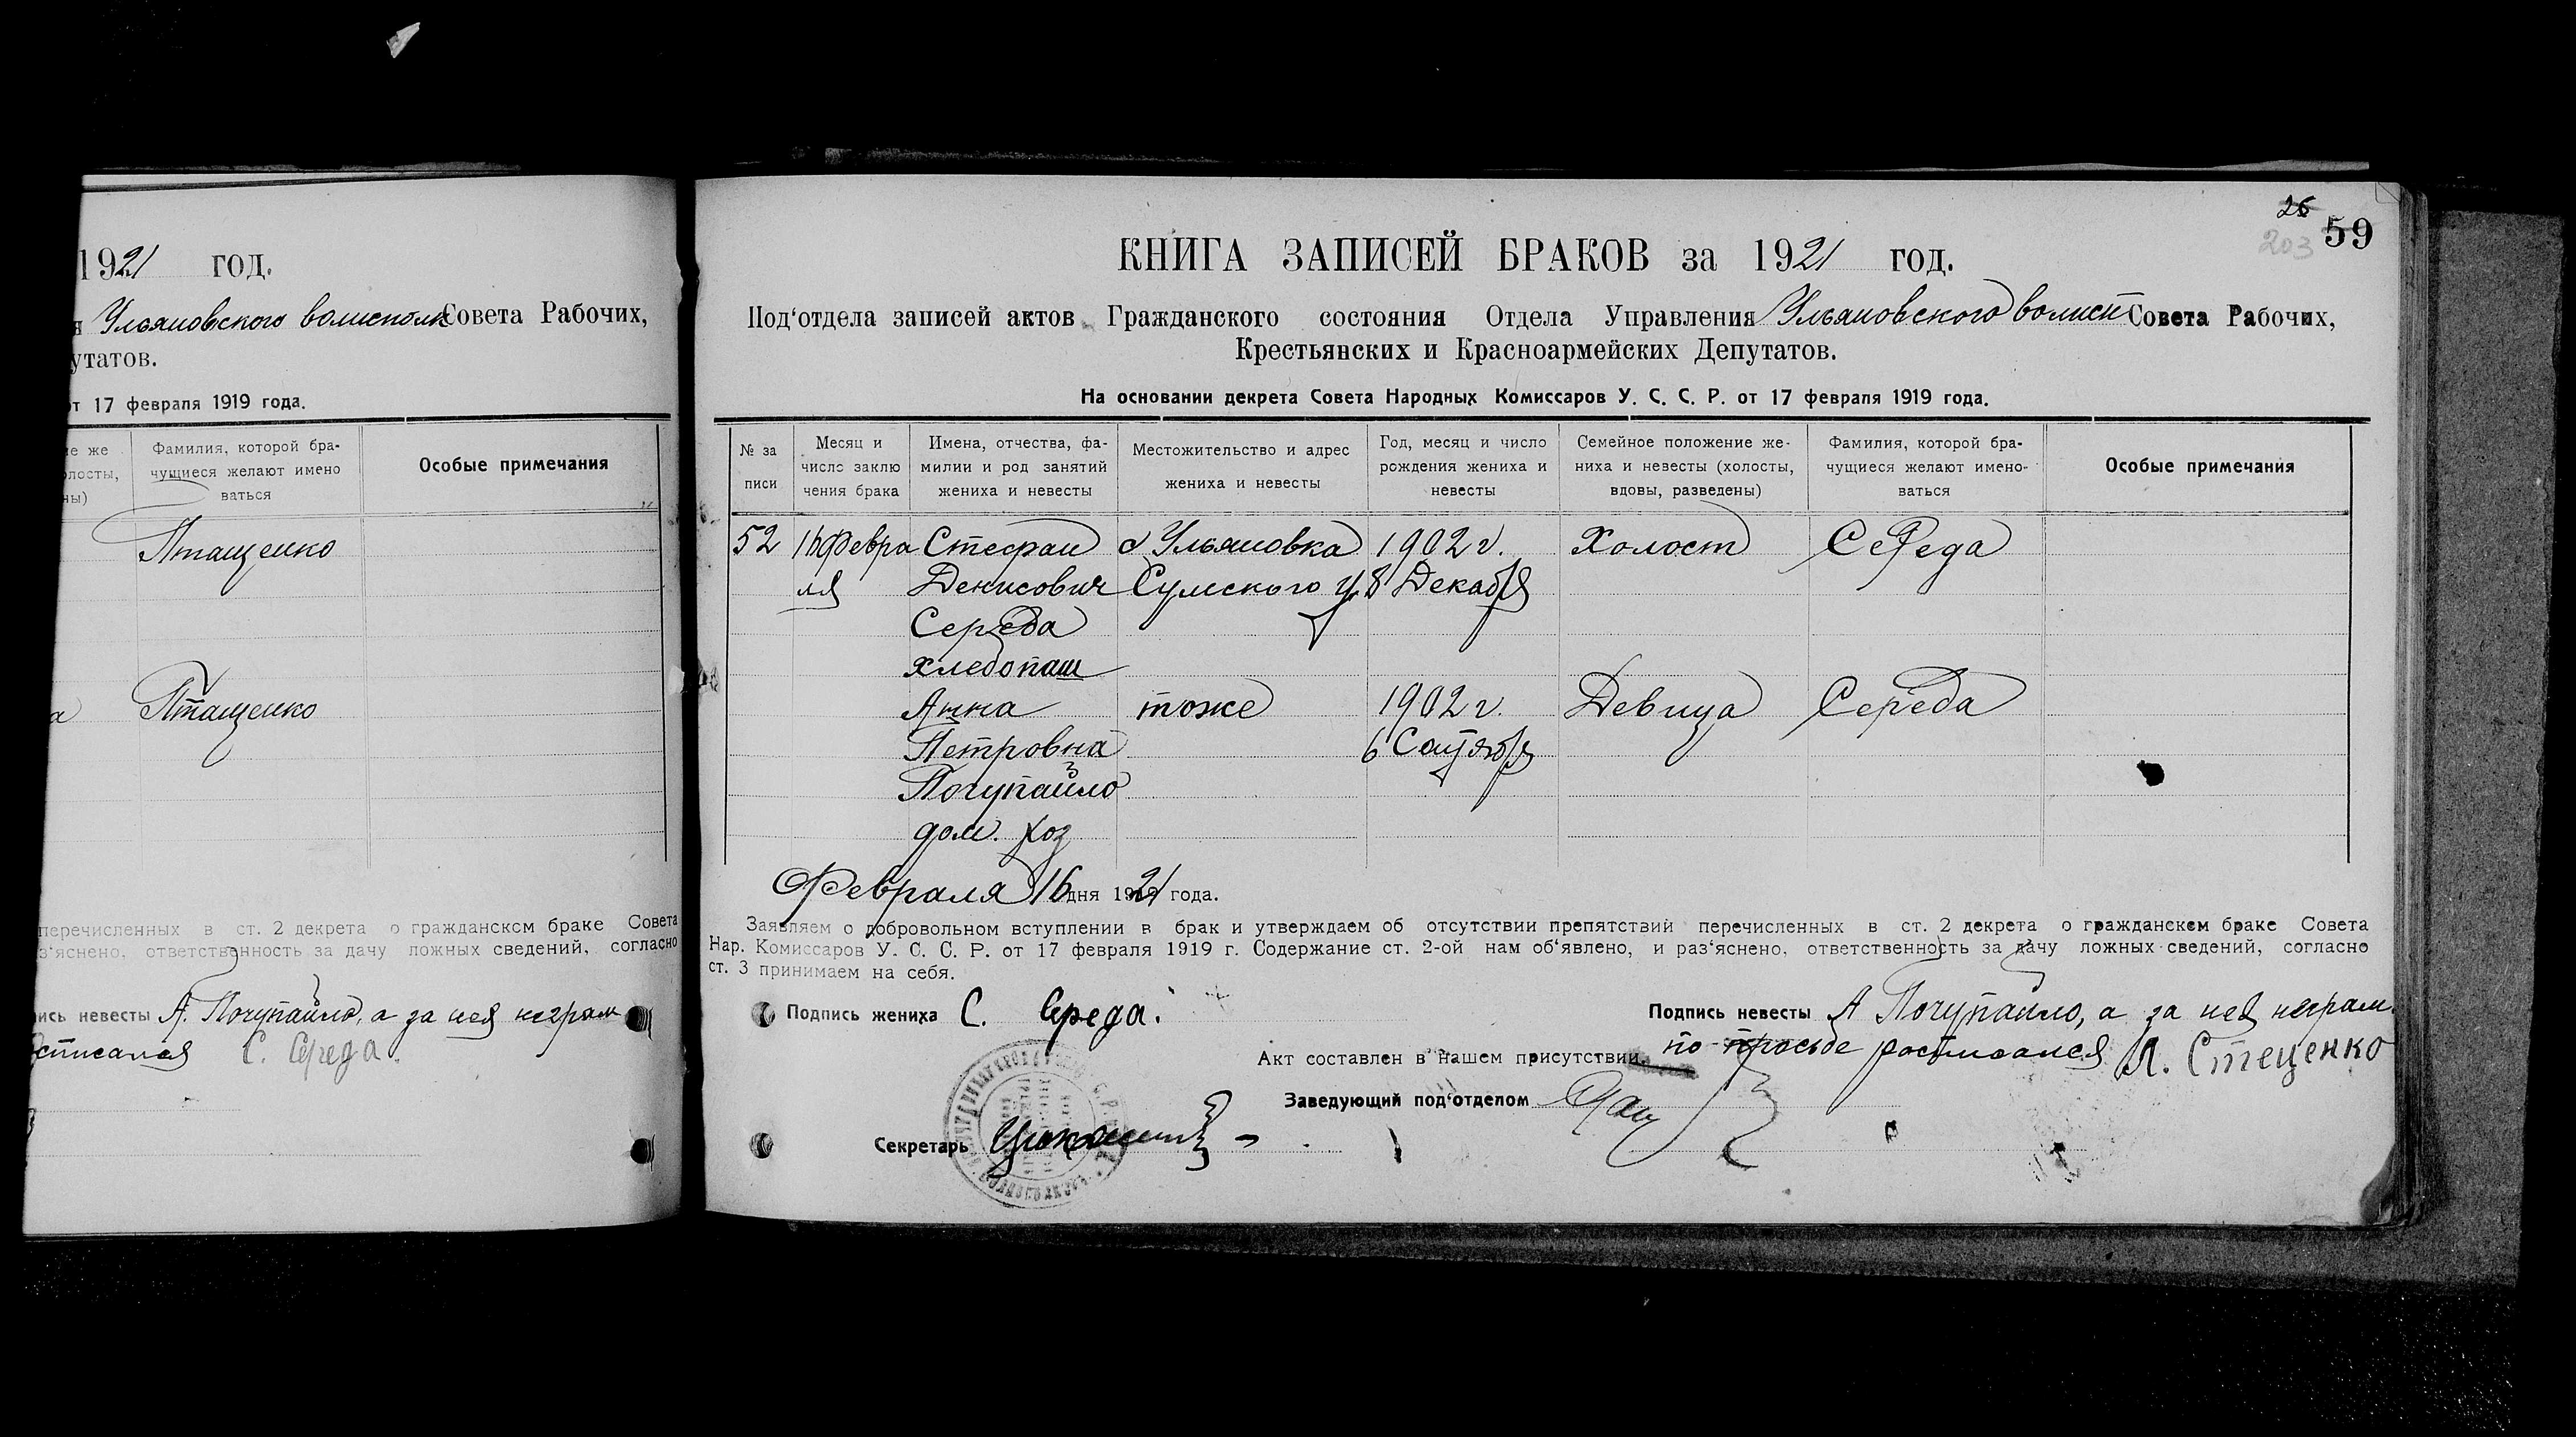 1921 год.
Ульяновского волисполк Совета Рабочих,
утатов.
от 17 февраля 1919 года.
Фамилия, которой бра-
чущиеся желают имено
ваться
Особые примечания
олосты,
ны)
Птащенко
Птащенко
перечисленных в ст. 2 декрета о гражданском браке Совета
з‘яснено, ответственность за дачу ложных сведений, согласно
ись невесты А. Почупайло, а за нея неграм
С. Середа.
26
59
203
КНИГА ЗАПИСЕЙ БРАКОВ за 1921 год.
Под‘отдела записей актов Гражданского состояния Отдела Управления Ульяновского волисп Совета Рабочих,
Крестьянских и Красноармейских Депутатов.
На основании декрета Совета Народных Комиссаров У. С. С. Р. от 17 февраля 1919 года.
№ за
писи
Месяц и
число заклю
чения брака
Имена, отчества, фа-
милии и род занятий
жениха и невесты
Местожительство и адрес
жениха и невесты
Год, месяц и число
рождения жениха и
невесты
Семейное положение же-
ниха и невесты (холосты,
вдовы, разведены)
Фамилия, которой бра-
чущиеся желают имено-
ваться
Особые примечания
52 16 Февра Стефан с Ульяновка 1902 г. Холост Середа
ля Денисович Сумского у. 8 Декабря
Середа
хлебопаш
Анна тоже 1902 г. Девица Середа
Петровна 6
Почупайло
дом. хоз
Февраля 16 дня 1921 года.
Заявляем о добровольном вступлении в брак и утверждаем об отсутствии препятствий перечисленных в ст. 2 декрета о гражданском браке Совета
Нар. Комиссаров У. С. С. Р. от 17 февраля 1919 г. Содержание ст. 2-ой нам об‘явлено, и раз‘яснено, ответственность за дачу ложных сведений, согласно
ст. 3 принимаем на себя.
Подпись жениха С. Середа.
Подпись невесты А Почупайло, а за нея неграм.
по просьбе росписался Л. Стеценко
Акт составлен в нашем присутствии.
Заведующий под‘отделом
Секретарь